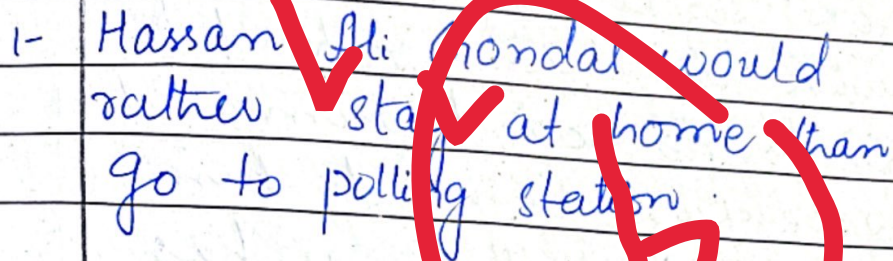 1- Hassan Ali Gondal would
rather stay at home than
go to polling station.